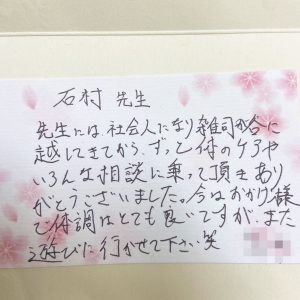 石村 先生
先生には、社会人になり雑司が谷に
越してきてから、ずっと体のケアや
いろんな相談に乗って頂きあり
がとうございました。今はおかげ様
で体調はとても良いですが、また
遊びに行かせて下さい笑